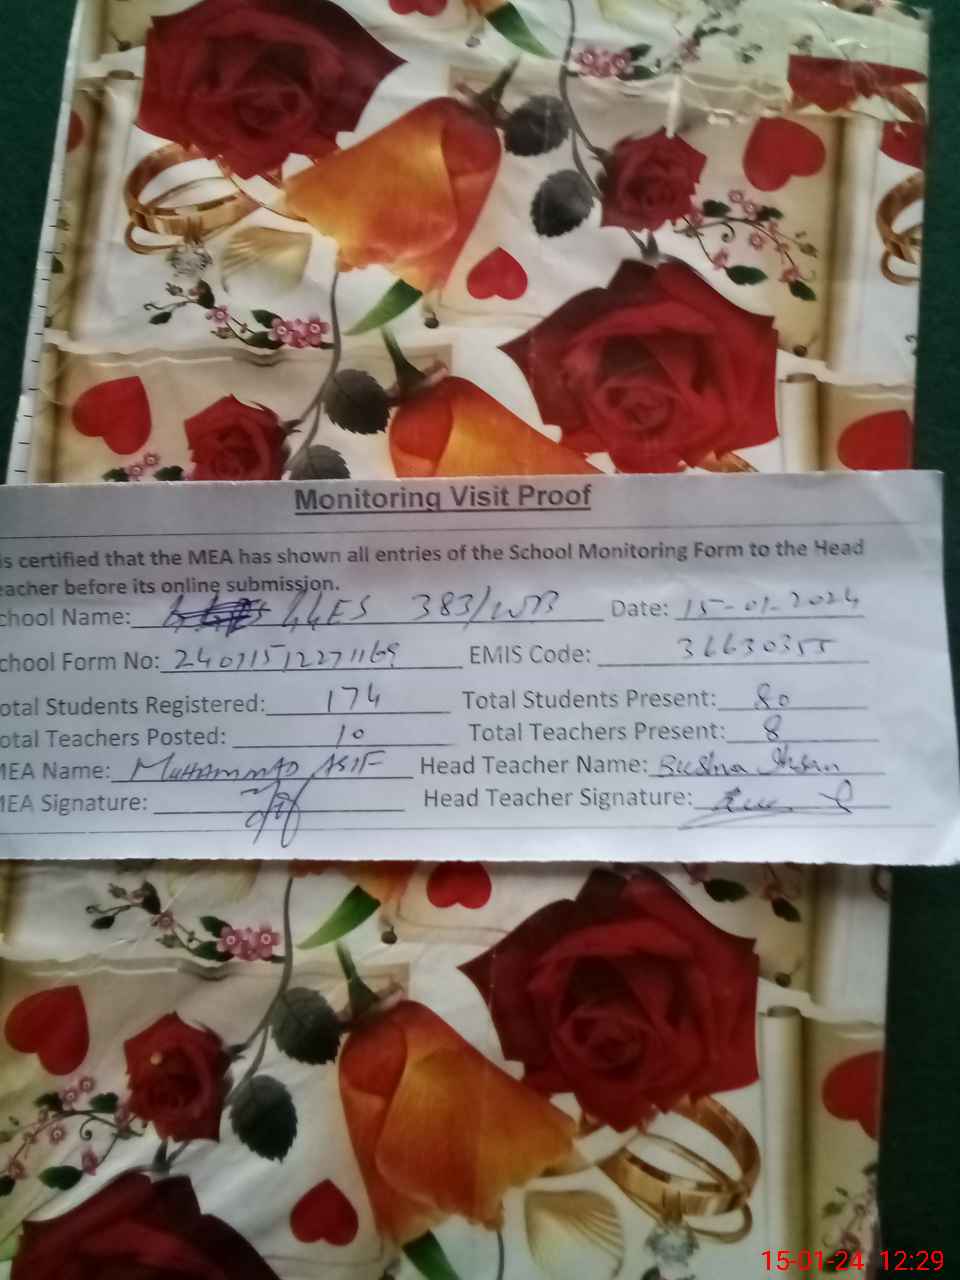 Monitoring Visit Proof
is certified that the MEA has shown all entries of the School Monitoring Form to the Head
eacher before its online submission.
chool Name: GGES 383/WB Date: 15-01-2024
chool Form No: 24011512271169 EMIS Code: 36630355
otal Students Registered: 174 Total Students Present: 80
otal Teachers Posted: 10 Total Teachers Present: 8
MEA Name: MUHAMMAD ASIF Head Teacher Name: Bushra Ihsan
MEA Signature: Head Teacher Signature:
15-01-24 12:29